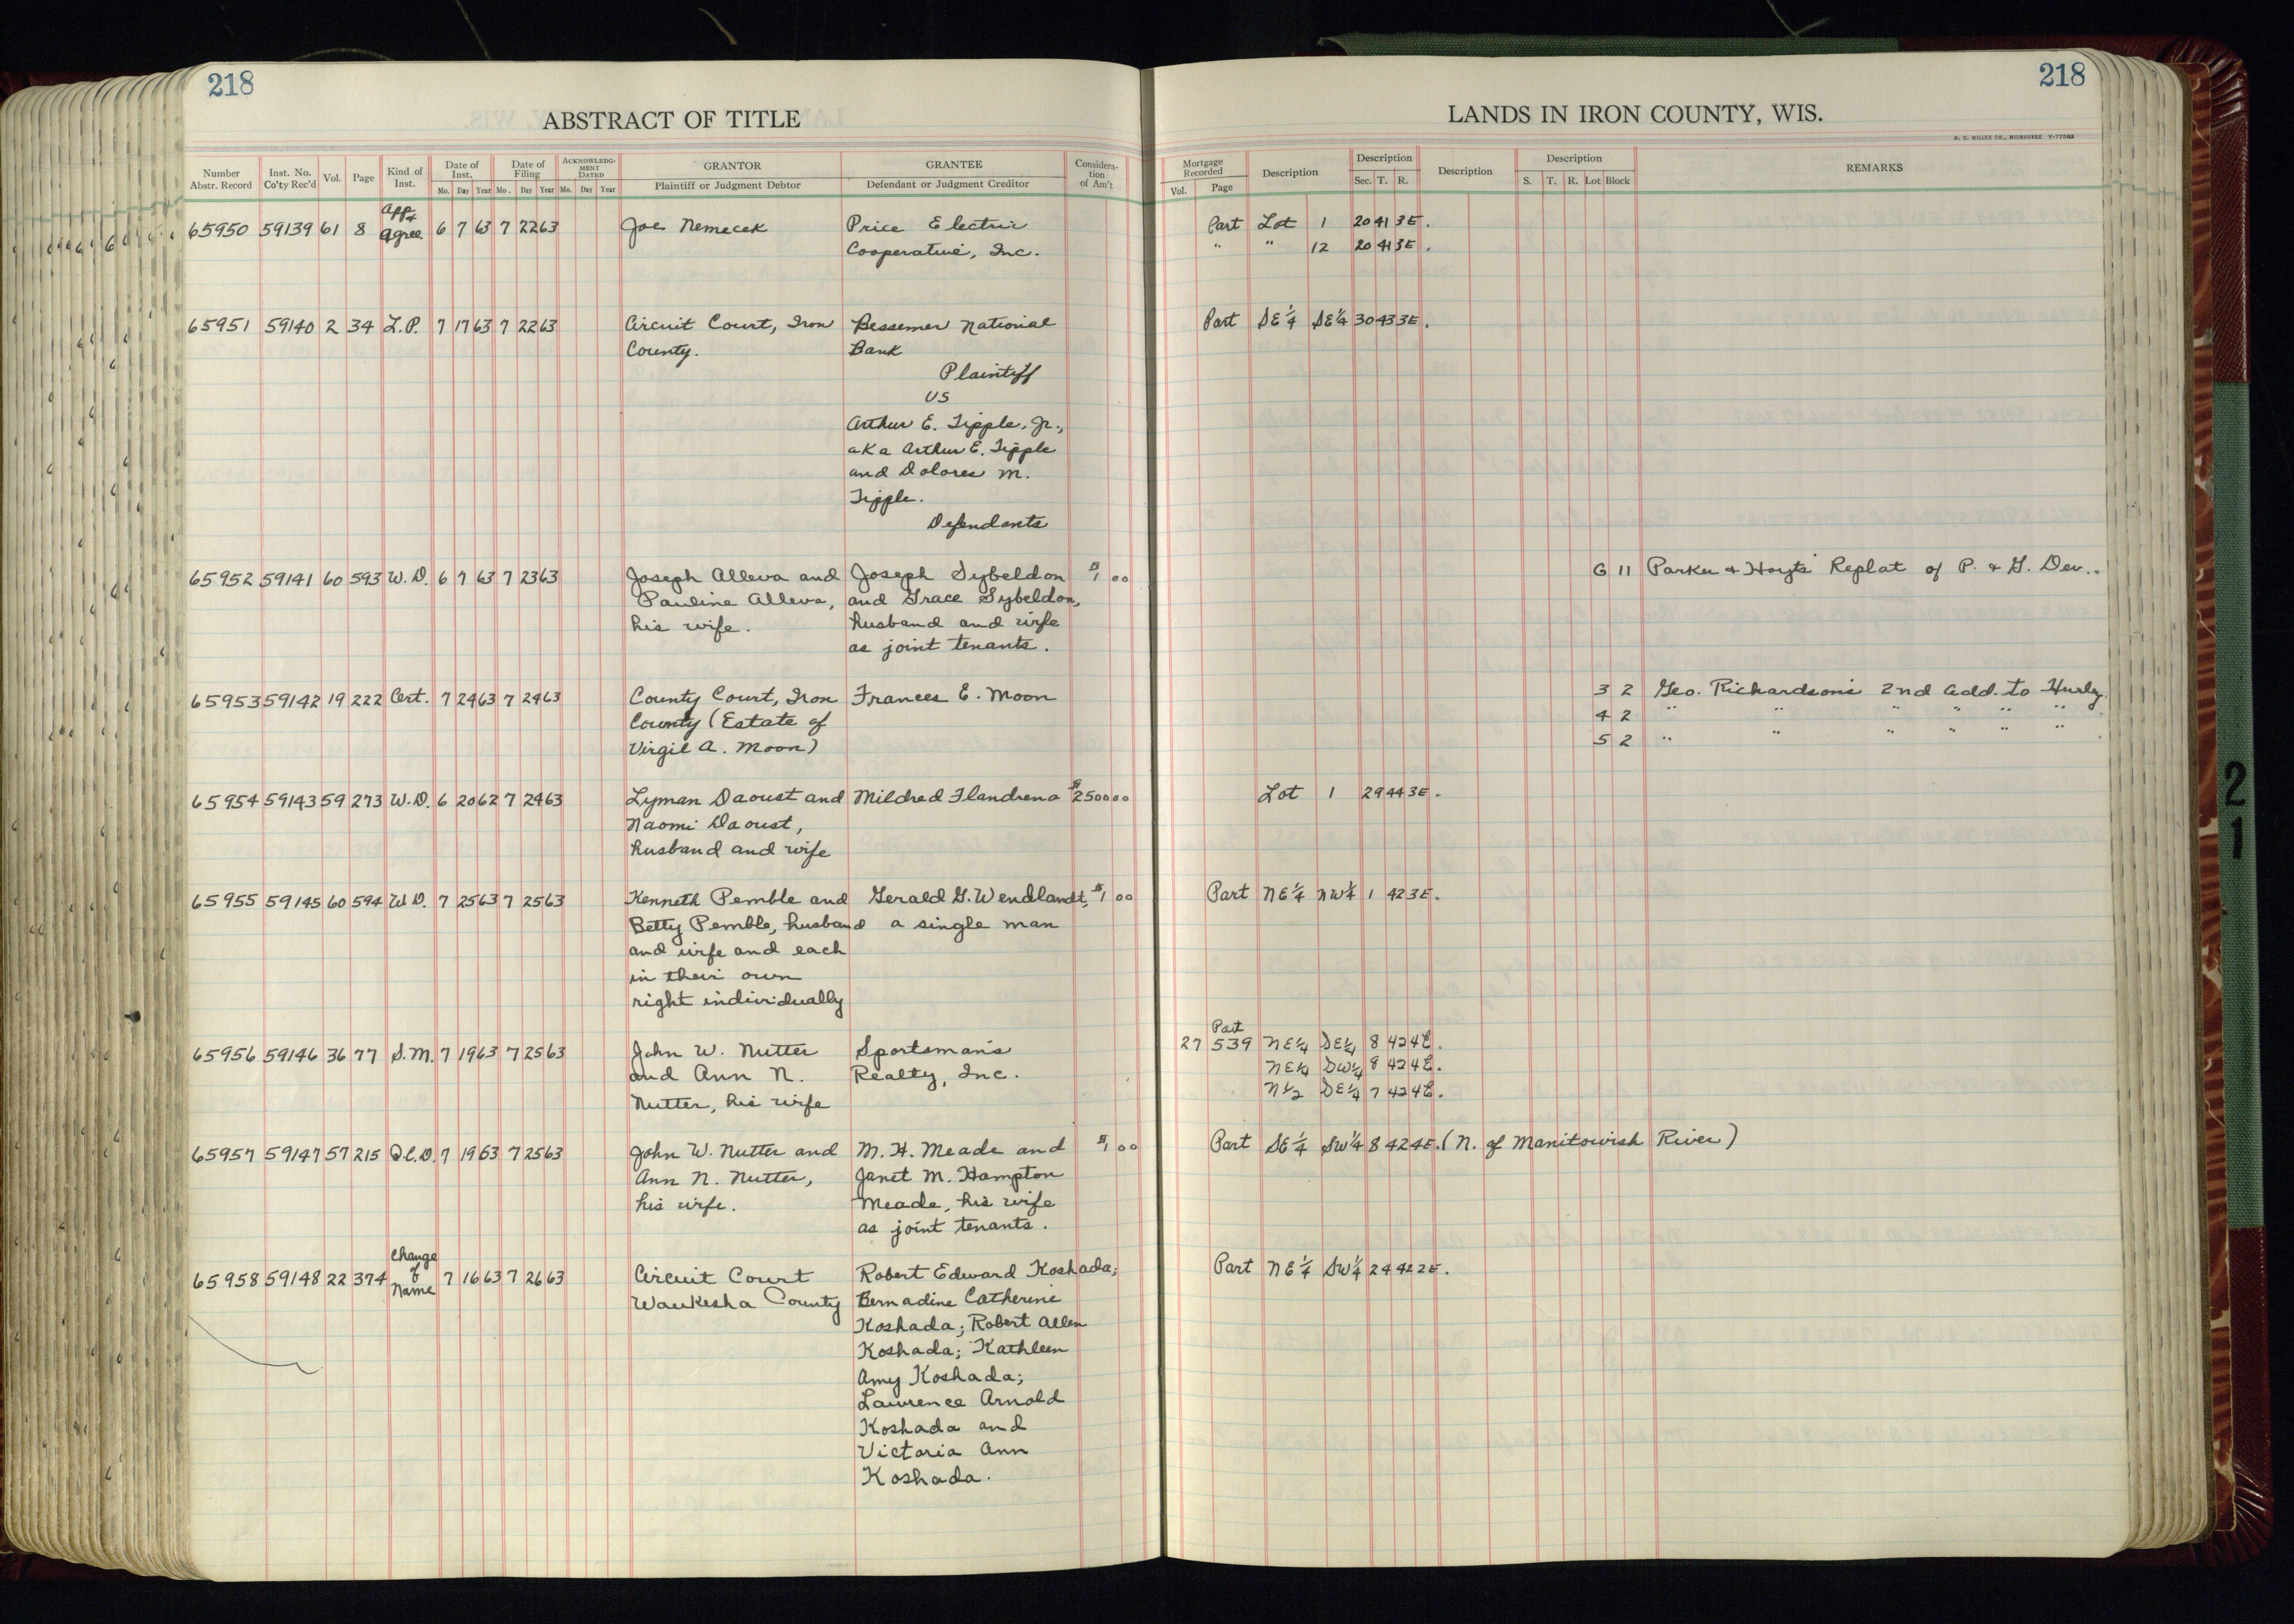 218
218
ABSTRACT OF TITLE
LANDS IN IRON COUNTY, WIS.
H. C. MILLER CO., MILWAUKEE Y-77562
Number Abstr. Record
Inst. No. Co'ty Rec'd
Vol.
Page
Kind of Inst.
Date of Inst.
Mo. Day Year
Date of Filing
Mo. Day Year
ACKNOWLEDGMENT DATED
Mo. Day Year
GRANTOR
Plaintiff or Judgment Debtor
GRANTEE
Defendant or Judgment Creditor
Consideration of Am't
Mortgage Recorded
Vol. Page
Description
Description
Sec. T. R.
Description
Description
S. T. R. Lot Block
REMARKS
App. +
65950 59139 61 8 Agree. 6 7 63 7 22 63 Joe Nemecek Price Electric Part Lot 1 20 41 3E.
Cooperative, Inc. " " 12 20 41 3E.
65951 59140 2 34 L.P. 7 17 63 7 22 63 Circuit Court, Iron Bessemer National Part SE¼ SE¼ 30 43 3E.
County. Bank
Plaintiff
VS
Arthur E. Tipple, Jr.,
aka Arthur E. Tipple
and Dolores M.
Tipple.
Defendants
65952 59141 60 593 W.D. 6 7 63 7 23 63 Joseph Alleva and Joseph Sybeldon $1 00 6 11 Parker & Hoyts Replat of P. & G. Dev..
Pauline Alleva, and Grace Sybeldon,
his wife. husband and wife
as joint tenants.
65953 59142 19 222 Cert. 7 24 63 7 24 63 County Court, Iron Frances E. Moon 3 2 Geo. Richardson's 2nd Add. to Hurley.
County (Estate of 4 2 " " " " " " .
Virgil A. Moon) 5 2 " " " " " " .
65954 59143 59 273 W.D. 6 20 62 7 24 63 Lyman Daoust and Mildred Flandrena $2500 00 Lot 1 29 44 3E.
Naomi Daoust,
husband and wife
65955 59145 60 594 W.D. 7 25 63 7 25 63 Kenneth Pemble and Gerald G. Wendlandt, $1 00 Part NE¼ NW¼ 1 42 3E.
Betty Pemble, husband a single man
and wife and each
in their own
right individually
Part
65956 59146 36 77 S.M. 7 19 63 7 25 63 John W. Nutter Sportsman's 27 539 NE¼ SE¼ 8 42 4E.
and Ann N. Realty, Inc. NE¼ SW¼ 8 42 4E.
Nutter, his wife N½ SE¼ 7 42 4E.
65957 59147 57 215 Q.C.D. 7 19 63 7 25 63 John W. Nutter and M. H. Meade and $1 00 Part SE¼ SW¼ 8 42 4E. (N. of Manitowish River)
Ann N. Nutter, Janet M. Hampton
his wife. Meade, his wife
as joint tenants.
Change
of
Name
65958 59148 22 374 7 16 63 7 26 63 Circuit Court Robert Edward Koshada; Part NE¼ SW¼ 24 42 2E.
Waukesha County Bernadine Catherine
Koshada; Robert Allen
Koshada; Kathleen
Amy Koshada;
Lawrence Arnold
Koshada and
Victoria Ann
Koshada.
21